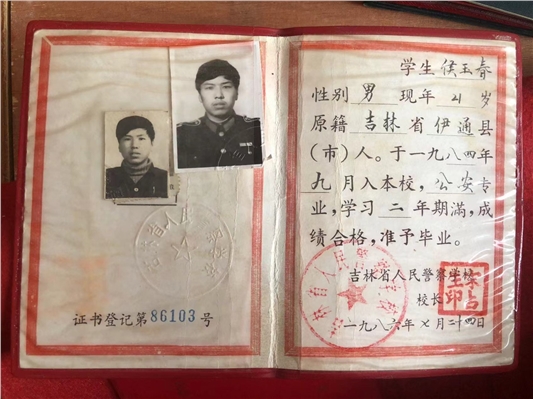 证书登记第86103号
学生 侯玉春
性别 男 现年 21 岁
原籍 吉林省 伊通县
(市)人。于一九八四年
九月入本校，公安专
业，学习 二 年期满，成
绩合格，准予毕业。
吉林省人民警察学校
校长
一九八六年七月二十四日